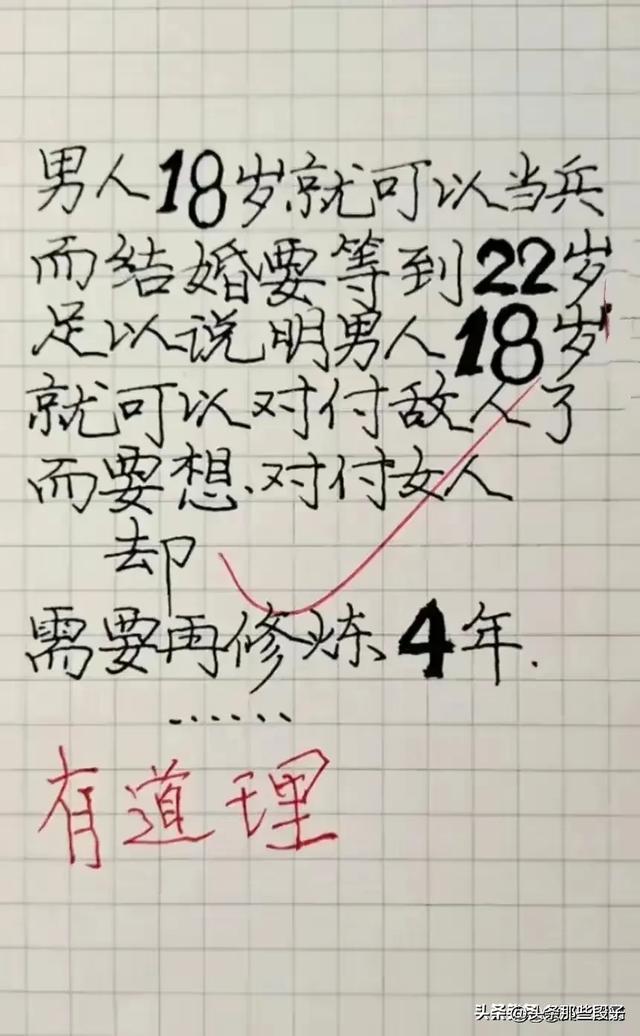 男人18岁就可以当兵
而结婚要等到22岁
足以说明男人18岁
就可以对付敌人了
而要想对付女人
却
需要再修炼4年.
......
有道理
头条@头条那些段子